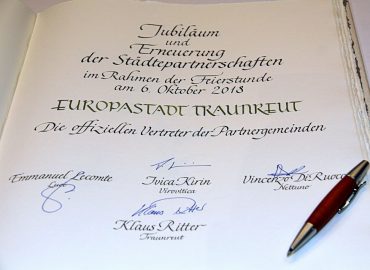 Jubiläum
und
Erneuerung
der Städtepartnerschaften
im Rahmen der Feierstunde
am 6. Oktober 2013
EUROPASTADT TRAUNREUT
Die offiziellen Vertreter der Partnergemeinden
Emmanuel Lecomte
Ivica Kirin
Virovitica
Vincenzo Di Ruocco
Nettuno
Klaus Ritter
Klaus Ritter
Traunreut